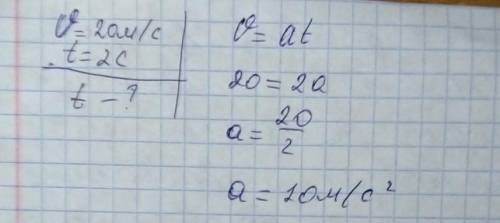 υ=20м/с
t=2с
t-?
υ=at
20=2a
a=20/2
a=10м/с²